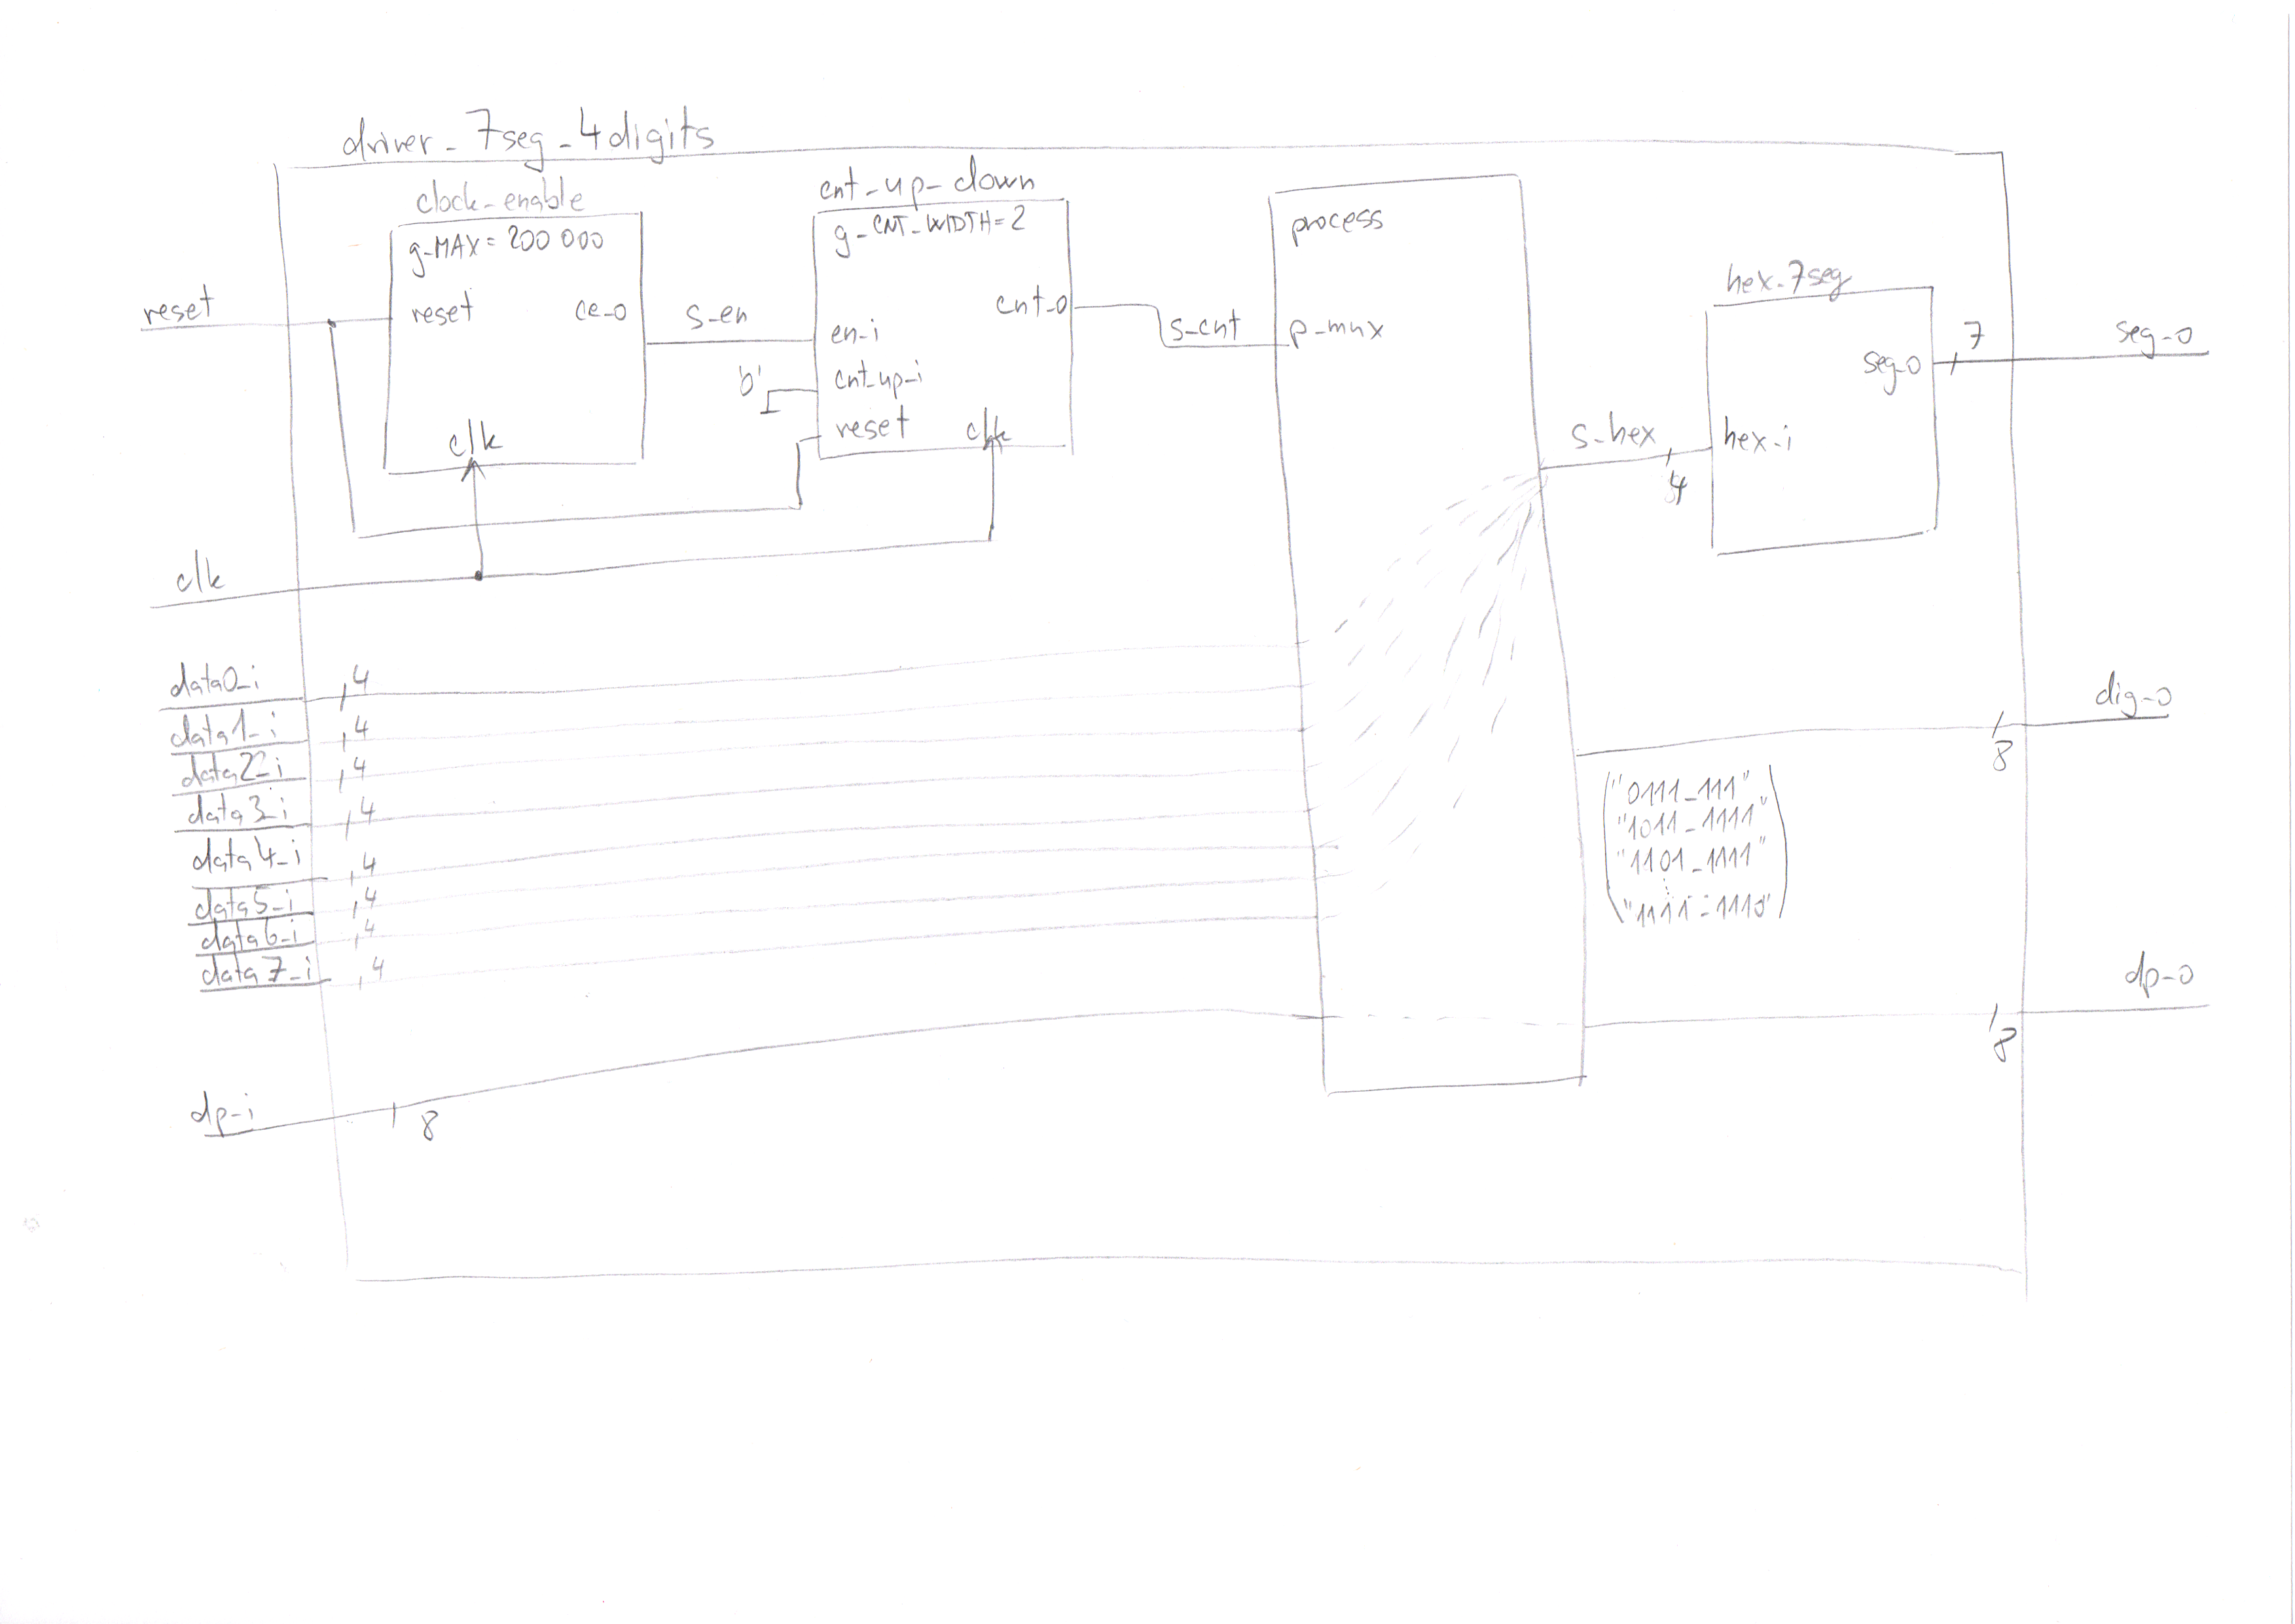 driver_7seg_4digits
clock_enable
g_MAX = 200 000
reset
ce_o
clk
s_en
cnt_up_down
g_CNT_WIDTH = 2
cnt_o
en_i
cnt_up_i
reset
clk
'0'
s_cnt
process
p_mux
s_hex
4
hex_7seg
seg_o
hex_i
7
seg_o
reset
clk
data0_i
4
data1_i
4
data2_i
4
data3_i
4
data4_i
4
data5_i
4
data6_i
4
data7_i
4
dp_i
8
dig_o
8
"0111_111"
"1011_1111"
"1101_1111"
"1111_1110"
dp_o
8